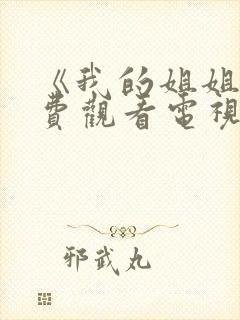 《我的姐姐
費觀看電視
邪武丸